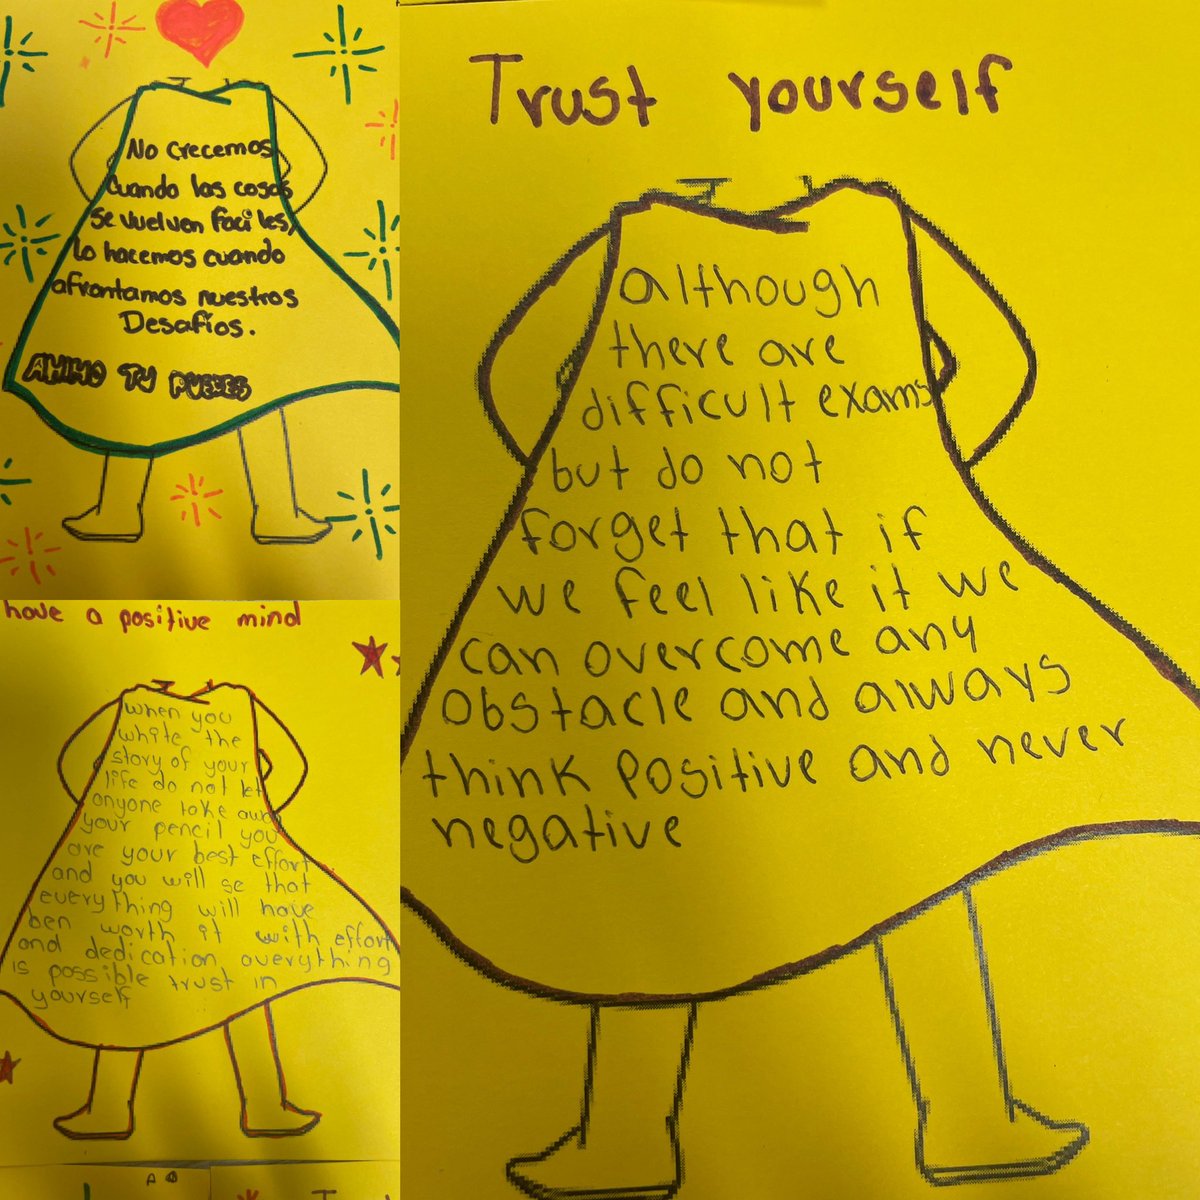 No crecemos
Cuando las cosas
Se vuelven faciles,
Lo hacemos cuando
afrontamos nuestros
Desafíos.
ANIMO TU PUEDES
have a positive mind
when you
white the
story of your
life do not let
anyone take away
your pencil you
are your best effort
and you will se that
everything will have
ben worth it with effort
and dedication everything
is possible trust in
yourself
Trust yourself
although
there are
difficult exams
but do not
forget that if
we feel like it we
can overcome any
obstacle and always
think positive and never
negative